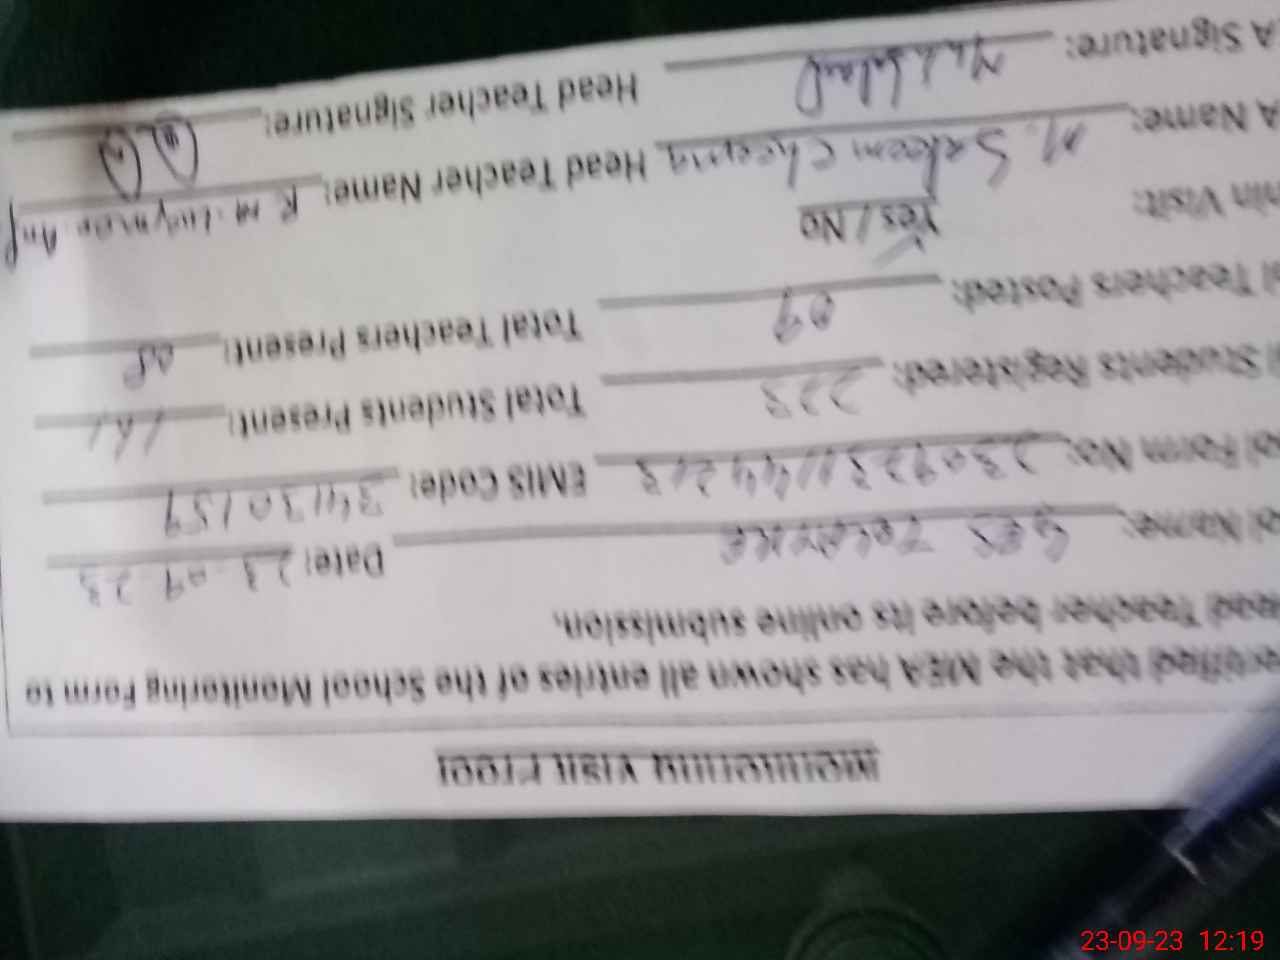 Monitoring Visit Proof
ertified that the MEA has shown all entries of the School Monitoring Form to
ead Teacher before its online submission.
ol Name: GES Date: 23 09 23
ol Form No: EMIS Code: 34130159
l Students Registered: 223 Total Students Present: 161
l Teachers Posted: 09 Total Teachers Present: 08
hin Visit: Yes / No
A Name: M. Saleem Cheema Head Teacher Name:
A Signature: Head Teacher Signature:
23-09-23 12:19